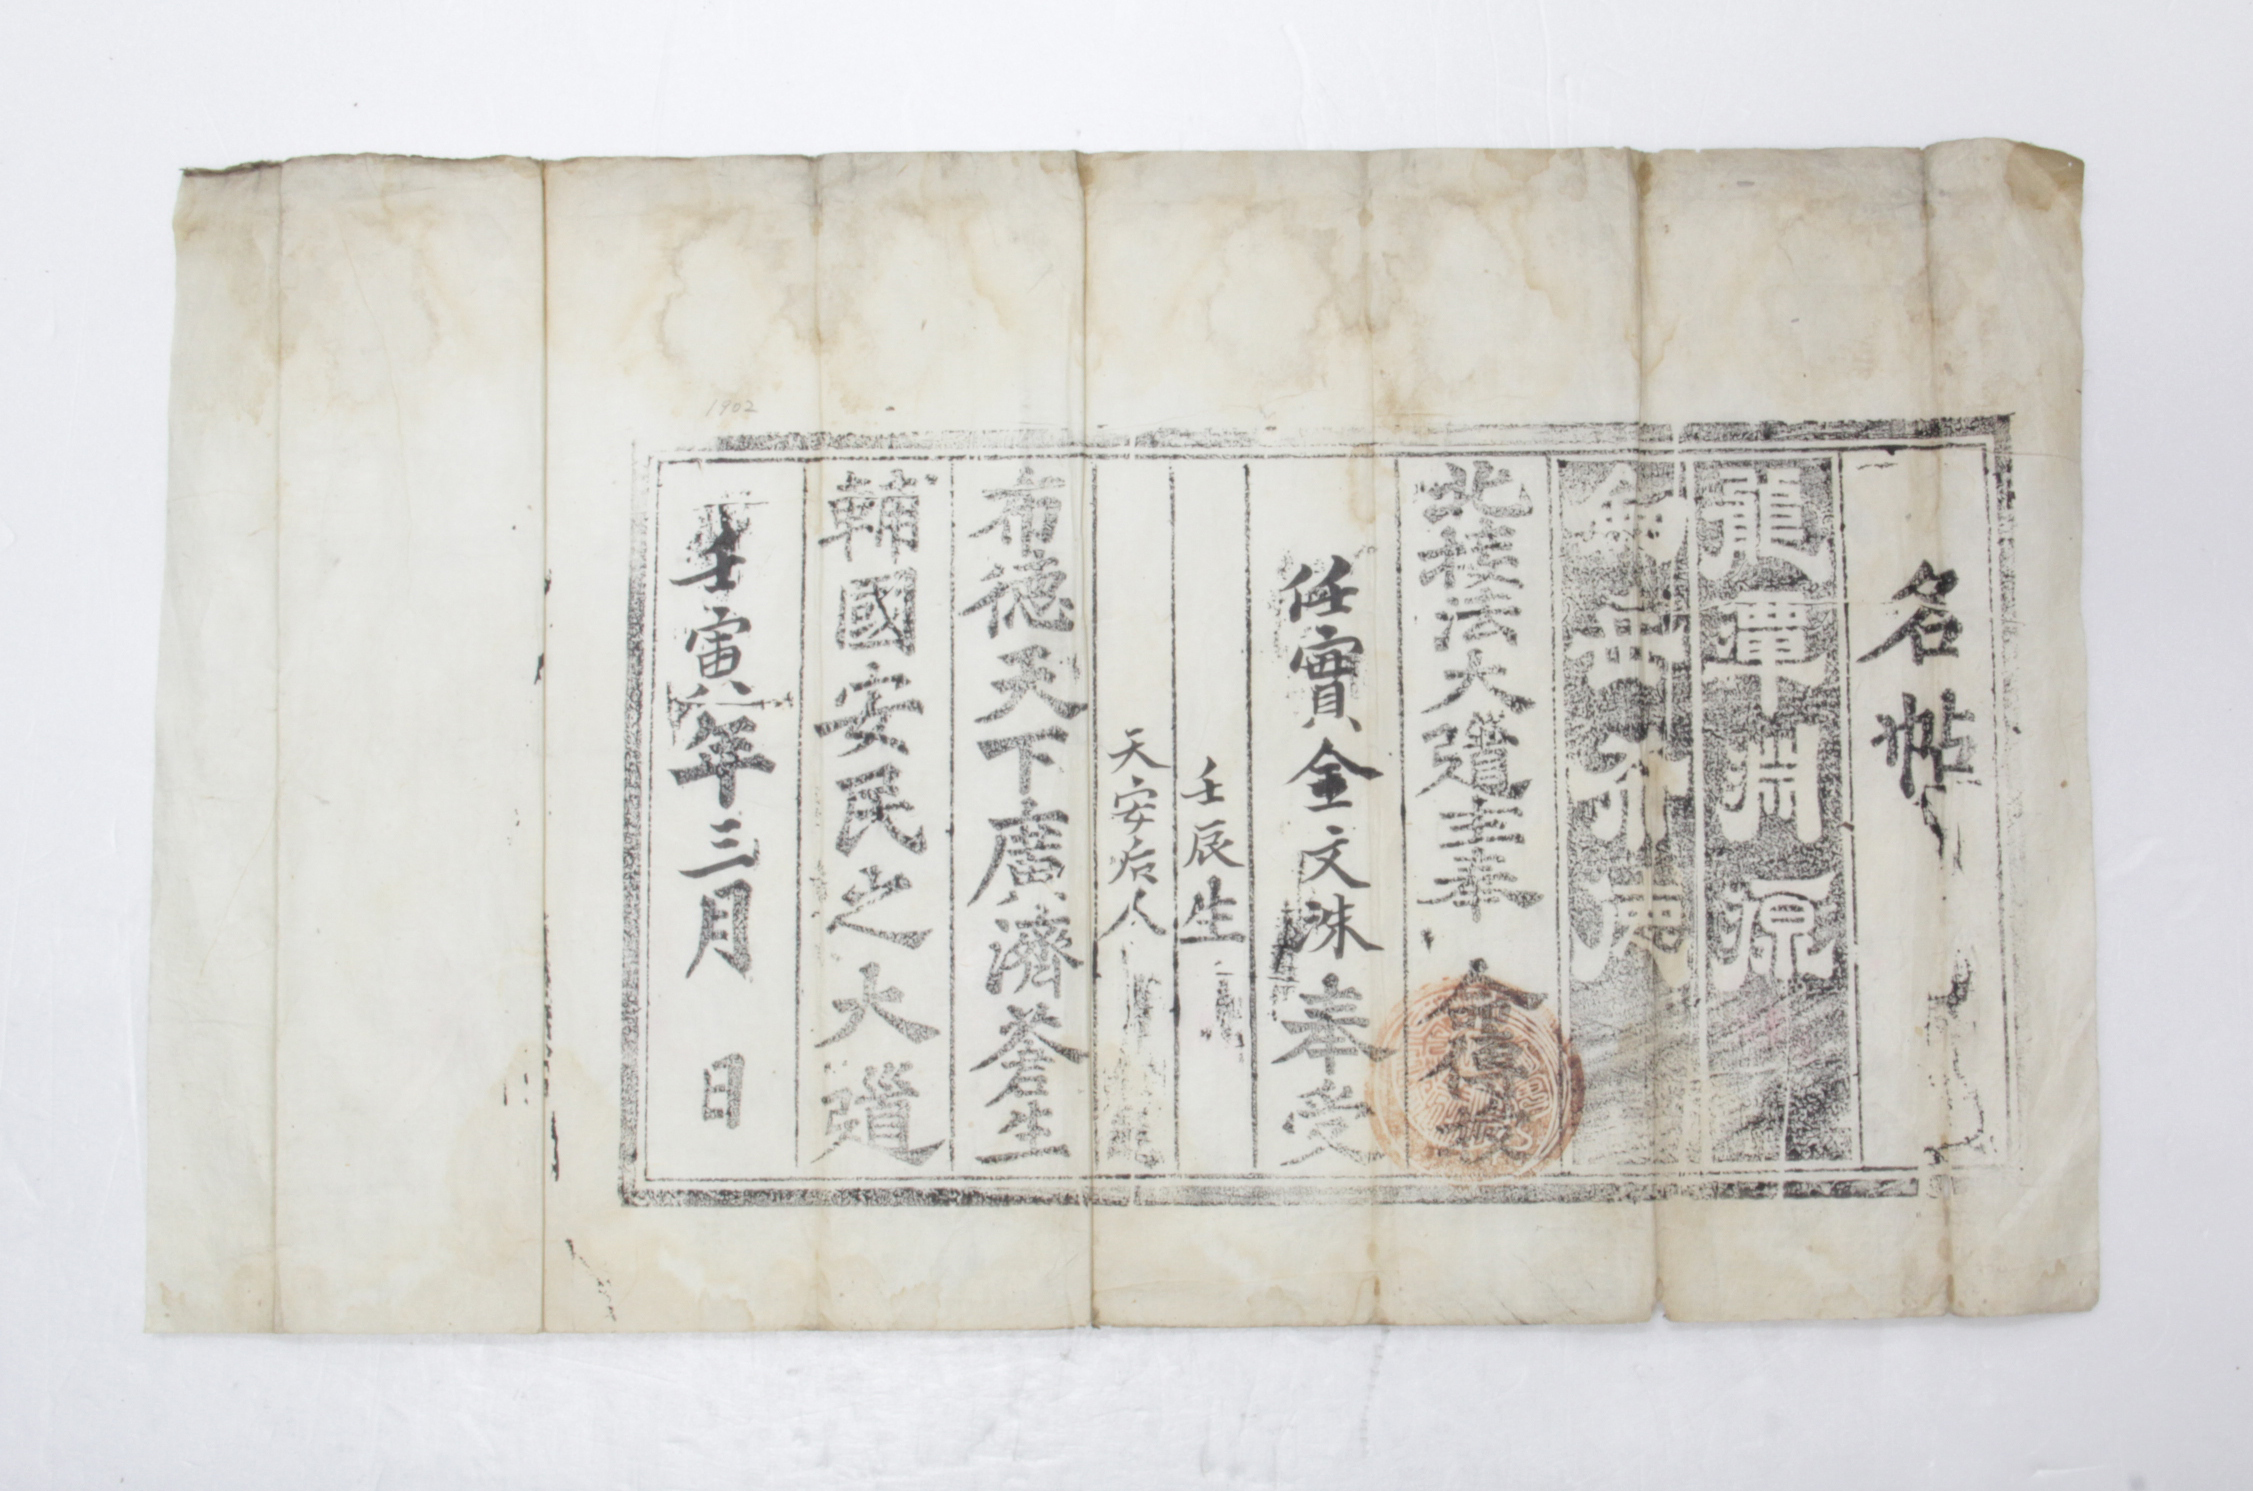 名帖
龍潭淵源
劍岳布德
北接法大道主奉 命信授
任實金文洙奉受
壬辰生
天安后人
布德天下廣濟蒼生
輔國安民之大道
壬寅年三月 日
1902